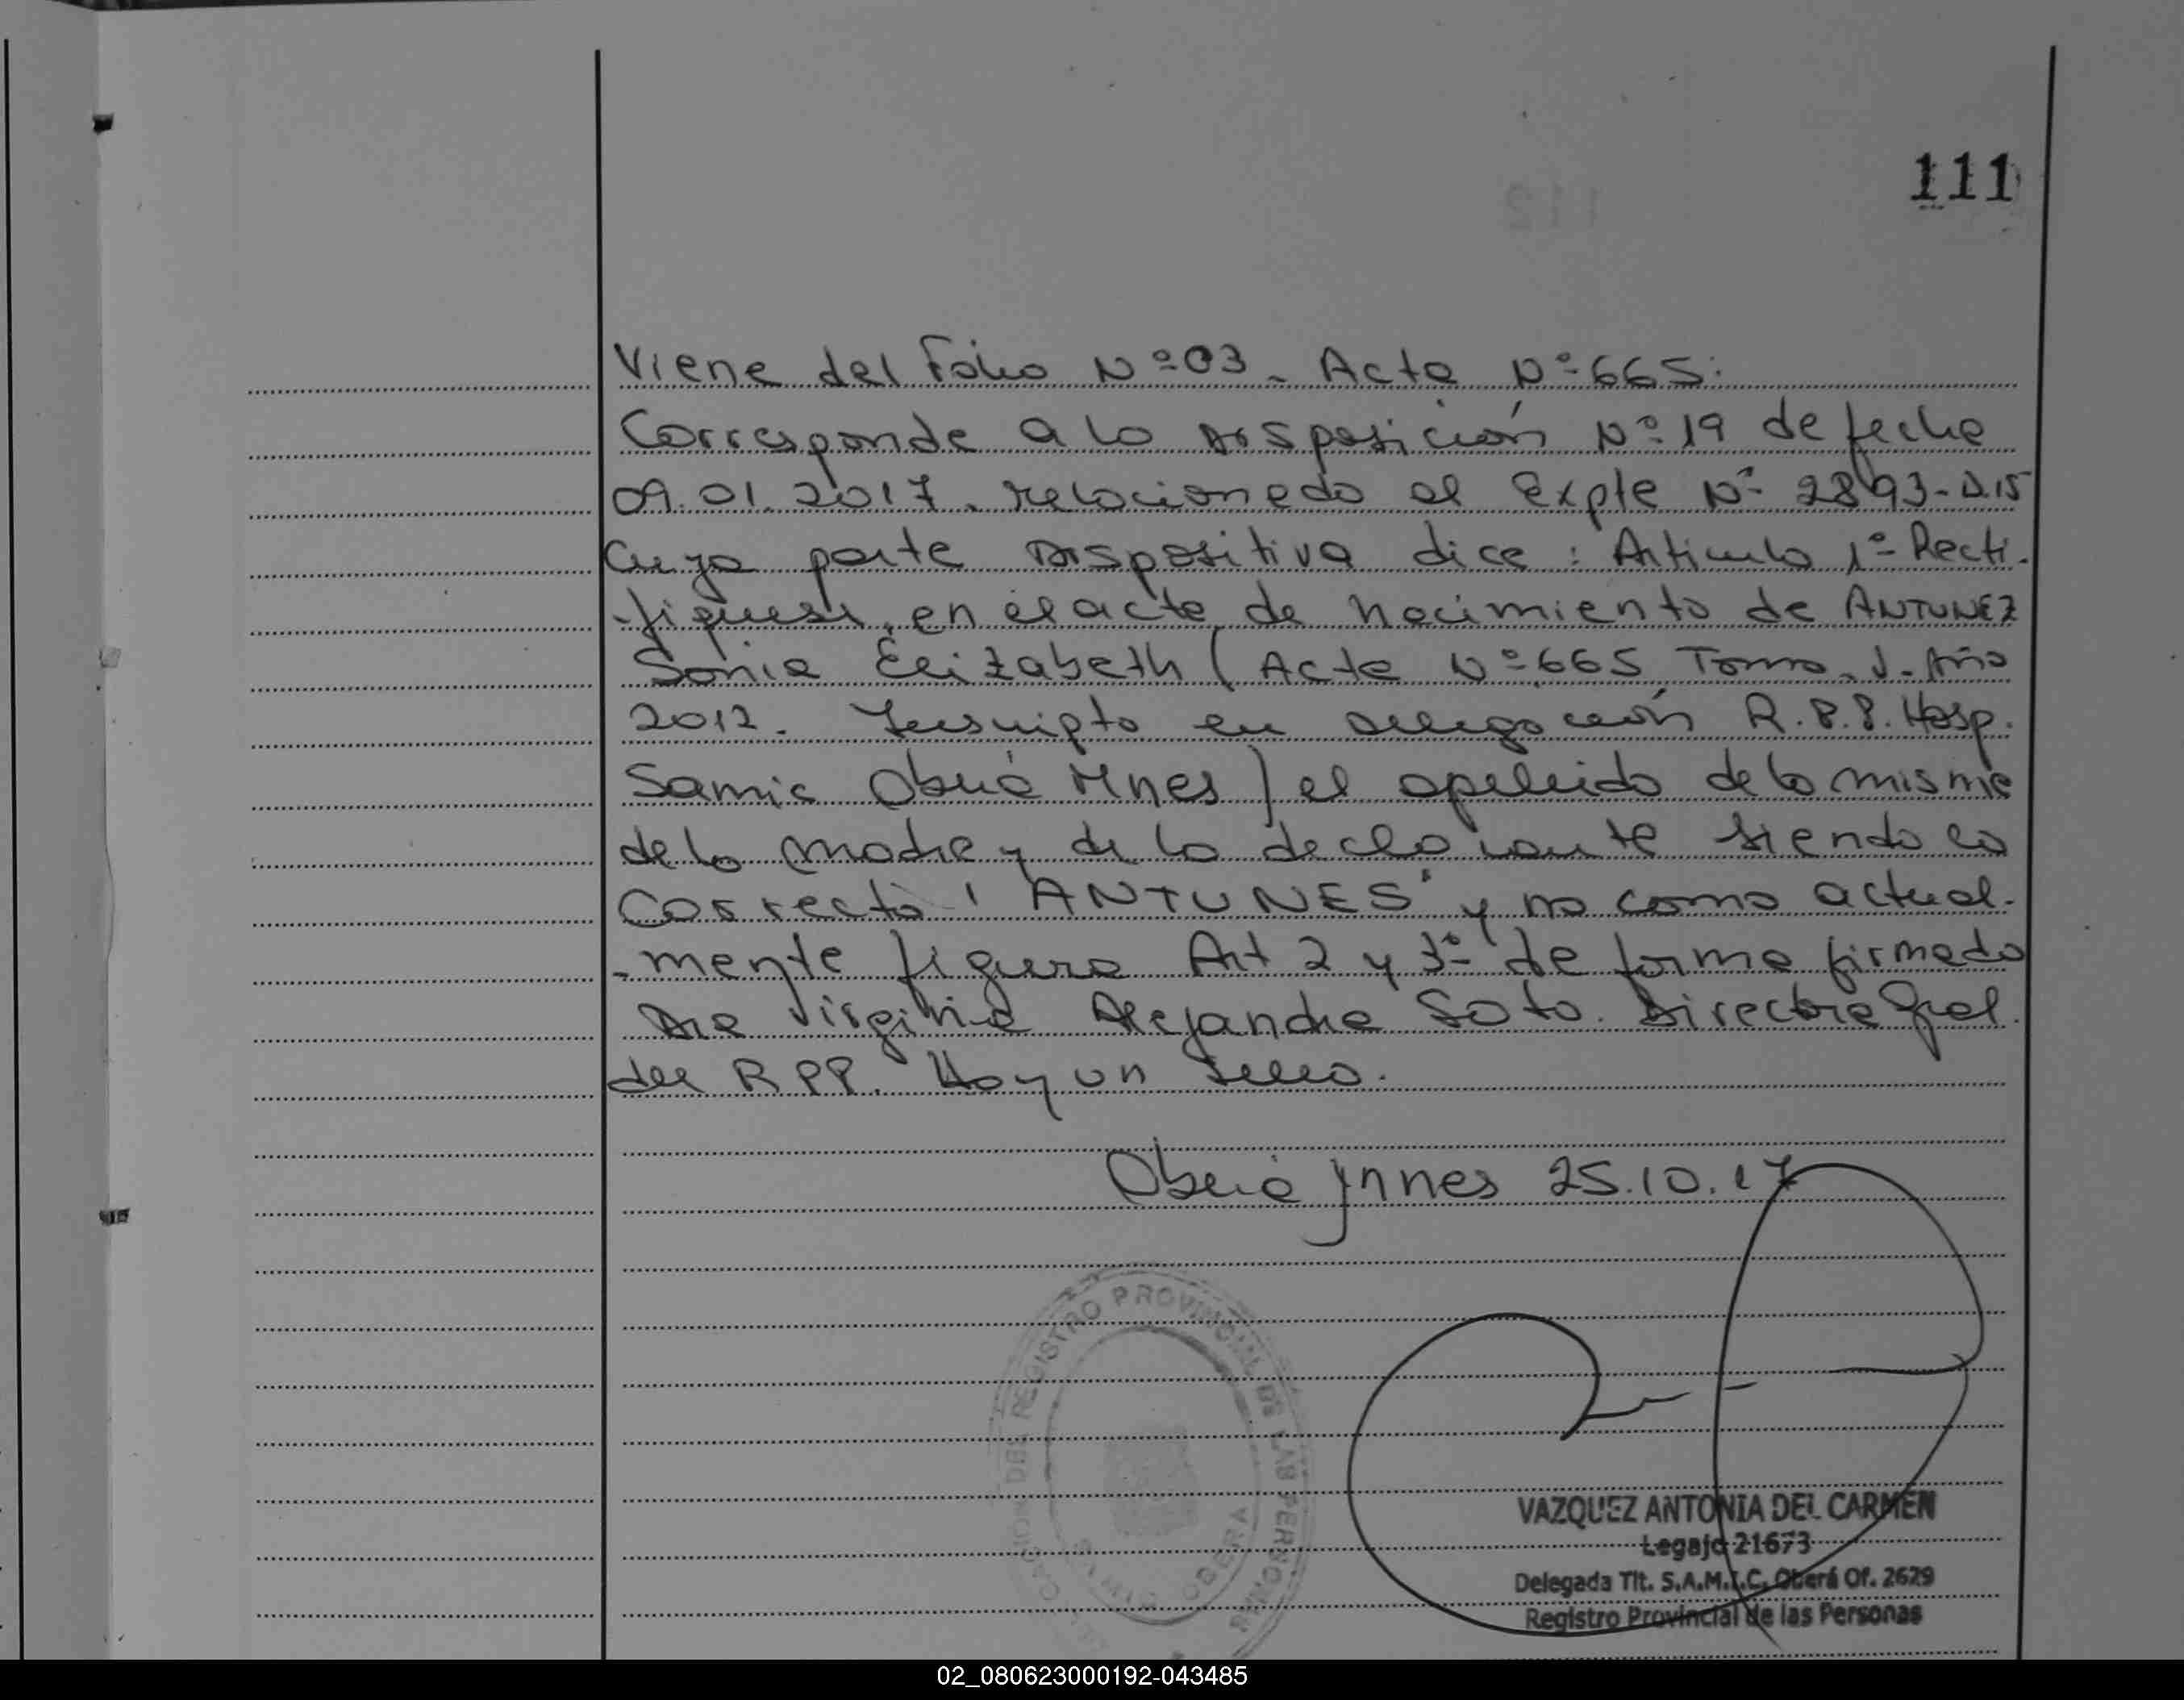 111
Viene del Folio Nº 03 - Acta Nº 665.
Corresponde a la Disposición Nº 19 de fecha
09.01.2017. relacionado al Expte Nº 2893-D.15
Cuya parte Dispositiva dice: Articulo 1º- Recti-
-fiquese, en el acta de nacimiento de ANTUNEZ
Sonia Elizabeth (Acta Nº 665 Tomo. Año
2012. Inscripto en delegación R.P.P. Hosp.
Samic Oberá Mnes) el apellido de la misma
de la madre y de la declarante siendo lo
Correcto "ANTUNES" y no como actual-
-mente figura Art 2 y 3º- de forma firmado
Dra Virginia Alejandra Soto. Directora Gral.
del RPP. Hay un Sello.
Oberá Mnes 25.10.17
REGISTRO PROVINCIAL DE LAS PERSONAS
OBERA
VAZQUEZ ANTONIA DEL CARMEN
Legajo 21673
Delegada Tit. S.A.M.I.C. Oberá Of. 2629
Registro Provincial de las Personas
02_080623000192-043485